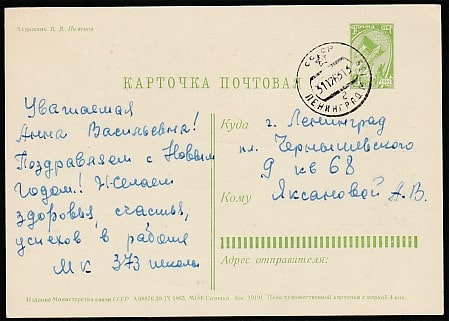 Художник В. В. Пименов
ПОЧТА
СССР
ЛЕНИНГРАД
КАРТОЧКА ПОЧТОВАЯ
Уважаемая
Анна Васильевна!
Поздравляем с Новым
годом! Желаем
здоровья, счастья,
успехов в работе
МК 373 школы
Куда
г. Ленинград
пл. Чернышевского
9 кв 68
Кому
Яксановой А.В.
Адрес отправителя:
Издание Министерства связи СССР А08876 30/IX 1963 МПФ Гознака Зак. 19191 Цена художественной карточки с маркой 4 коп.